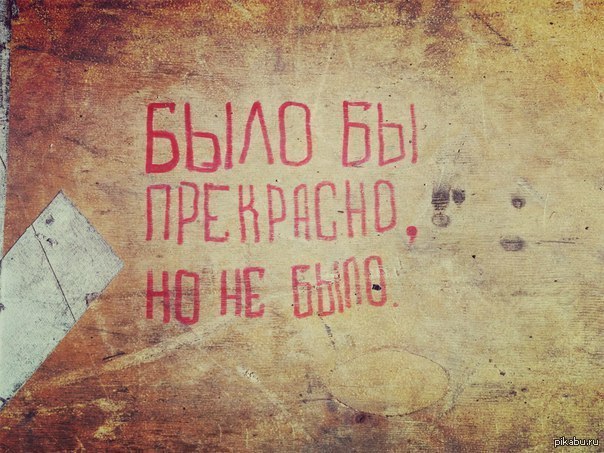 БЫЛО БЫ
ПРЕКРАСНО,
НО НЕ БЫЛО.
pikabu.ru